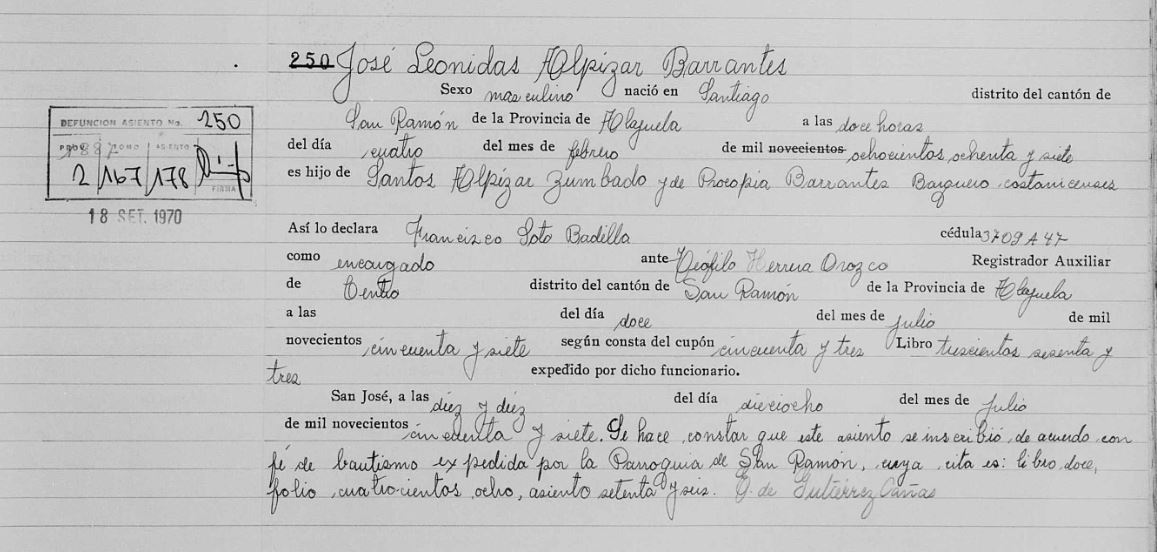 250 José Leonidas Alpízar Barrantes
Sexo masculino nació en Santiago distrito del cantón de
San Ramón de la Provincia de Alajuela a las doce horas
del día cuatro del mes de febrero de mil novecientos ochocientos ochenta y siete
es hijo de Santos Alpízar Zumbado y de Procopia Barrantes Barquero, costarricenses
DEFUNCION ASIENTO No. 250
PROV. TOMO ASIENTO
1887
2 167 178
FIRMA
18 SET. 1970
Así lo declara Francisco Soto Badilla cédula 3709 A 47
como encargado ante Teófilo Herrera Orozco Registrador Auxiliar
de Centro distrito del cantón de San Ramón de la Provincia de Alajuela
a las del día doce del mes de julio de mil
novecientos cincuenta y siete según consta del cupón cincuenta y tres Libro trescientos sesenta y
tres expedido por dicho funcionario.
San José, a las diez y diez del día dieciocho del mes de julio
de mil novecientos cincuenta y siete. Se hace constar que este asiento se inscribió de acuerdo con
fé de bautismo expedida por la Parroquia de San Ramón, cuya cita es: libro doce,
folio cuatrocientos ocho, asiento setenta y seis. G. de Gutiérrez Cañas